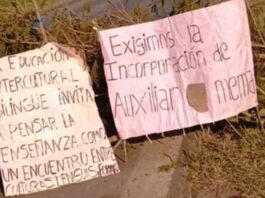 EDUCACIÓN
INTERCULTURAL
BILINGUE INVITA
A PENSAR LA
ENSEÑANZA COMO
UN ENCUENTRO ENTRE
CULTURAS-LENGUAS
EXISIMOS LA
INCORPORACIÓN DE
AUXILIAR